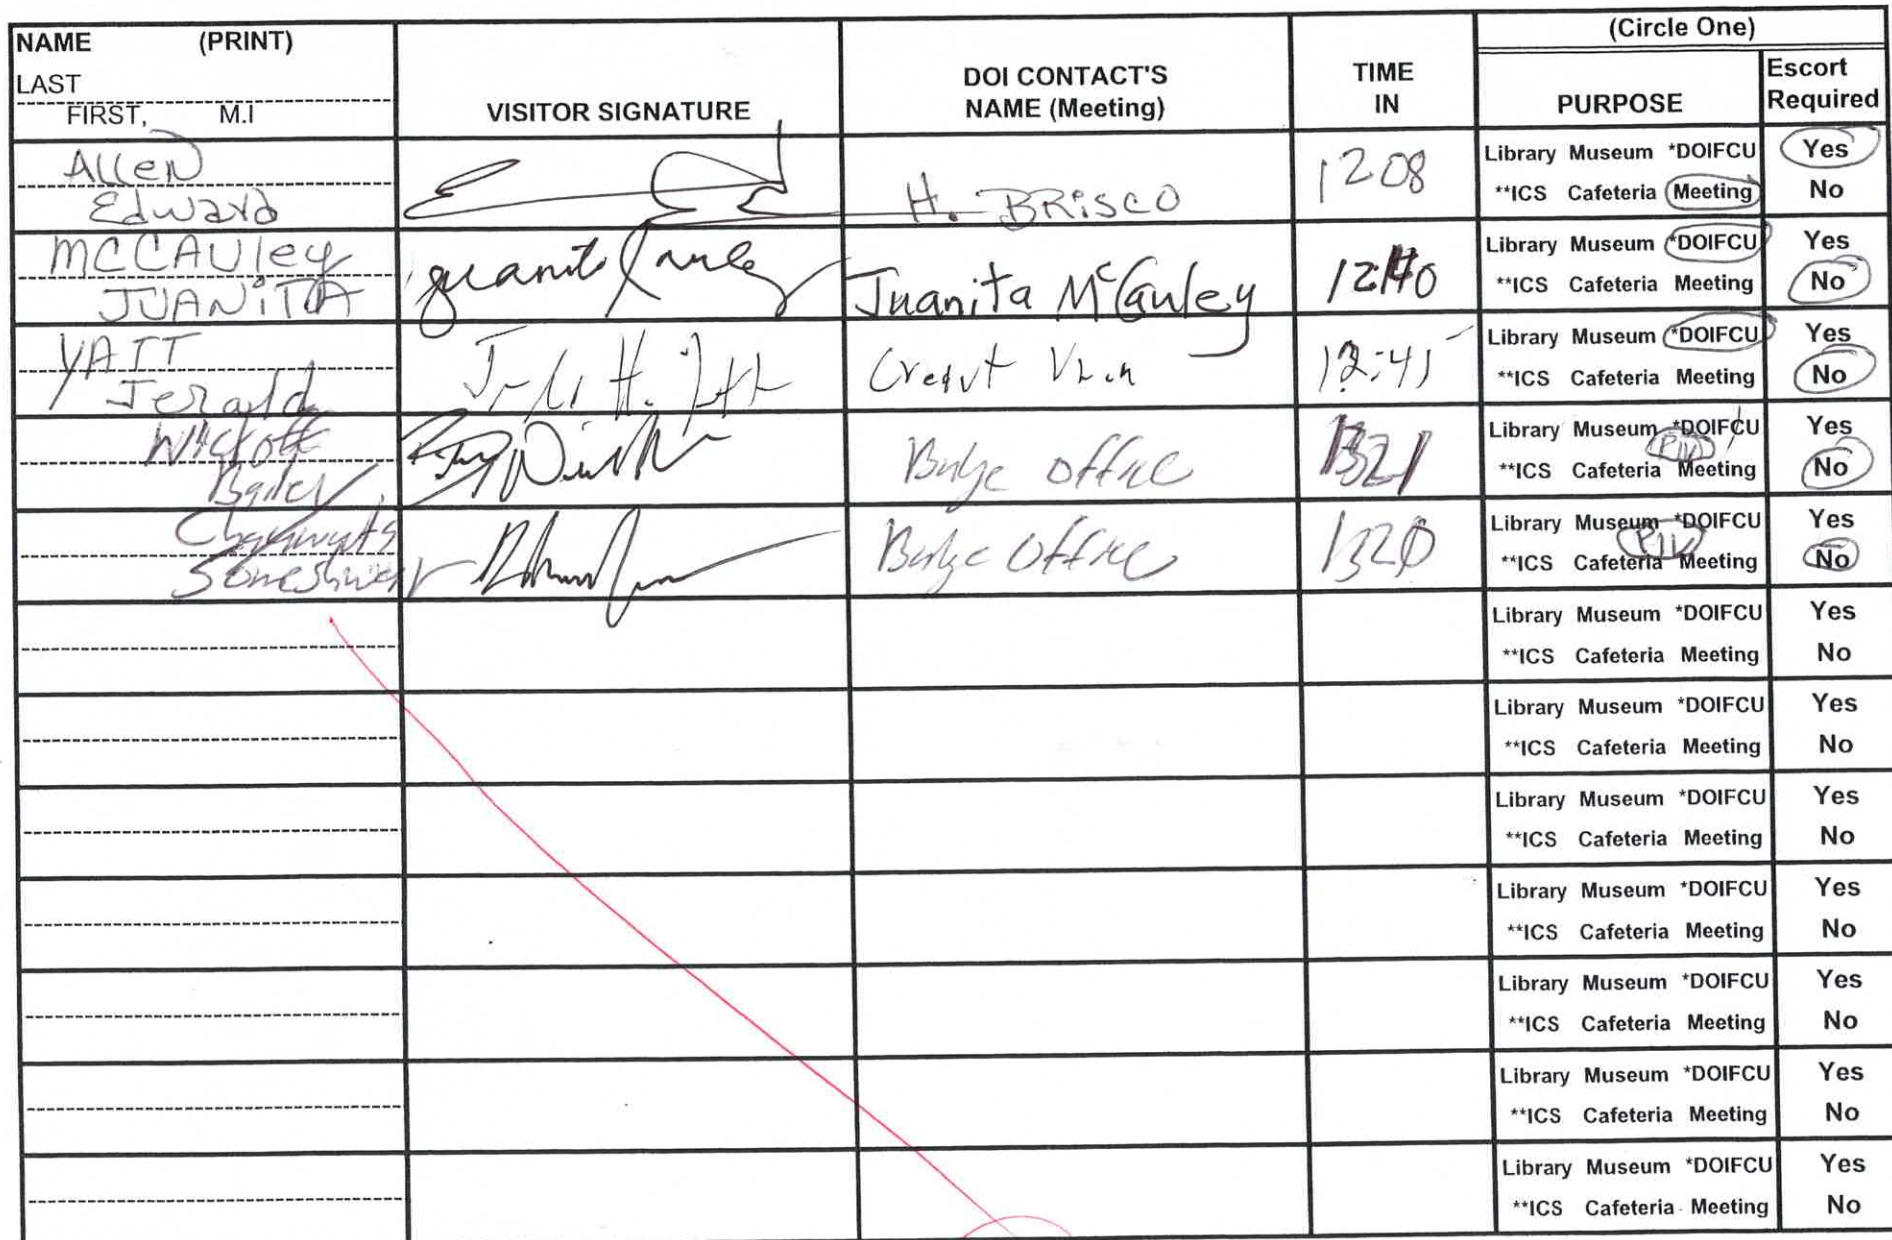 NAME (PRINT)
LAST
FIRST, M.I
VISITOR SIGNATURE
DOI CONTACT'S
NAME (Meeting)
TIME
IN
(Circle One)
PURPOSE
Escort
Required
Allen
Edward
H. BRISCO
1208
Library Museum *DOIFCU Yes
**ICS Cafeteria Meeting No
MCCAUley
JUANITA
Juanita McCauley
1240
Library Museum *DOIFCU Yes
**ICS Cafeteria Meeting No
YATT
Jerald
12:45
Library Museum *DOIFCU Yes
**ICS Cafeteria Meeting No
Office
1321
Library Museum *DOIFCU Yes
PIV
**ICS Cafeteria Meeting No
Someshwar
Office
1320
Library Museum *DOIFCU Yes
PIV
**ICS Cafeteria Meeting No
Library Museum *DOIFCU Yes
**ICS Cafeteria Meeting No
Library Museum *DOIFCU Yes
**ICS Cafeteria Meeting No
Library Museum *DOIFCU Yes
**ICS Cafeteria Meeting No
Library Museum *DOIFCU Yes
**ICS Cafeteria Meeting No
Library Museum *DOIFCU Yes
**ICS Cafeteria Meeting No
Library Museum *DOIFCU Yes
**ICS Cafeteria Meeting No
Library Museum *DOIFCU Yes
**ICS Cafeteria Meeting No